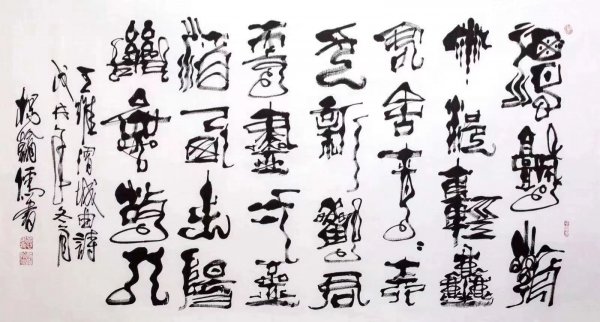 渭城朝
雨浥輕塵
客舍青青柳
色新勸君
更盡一杯
酒西出陽
關無故人
王維渭城曲詩
戊戌年冬之月